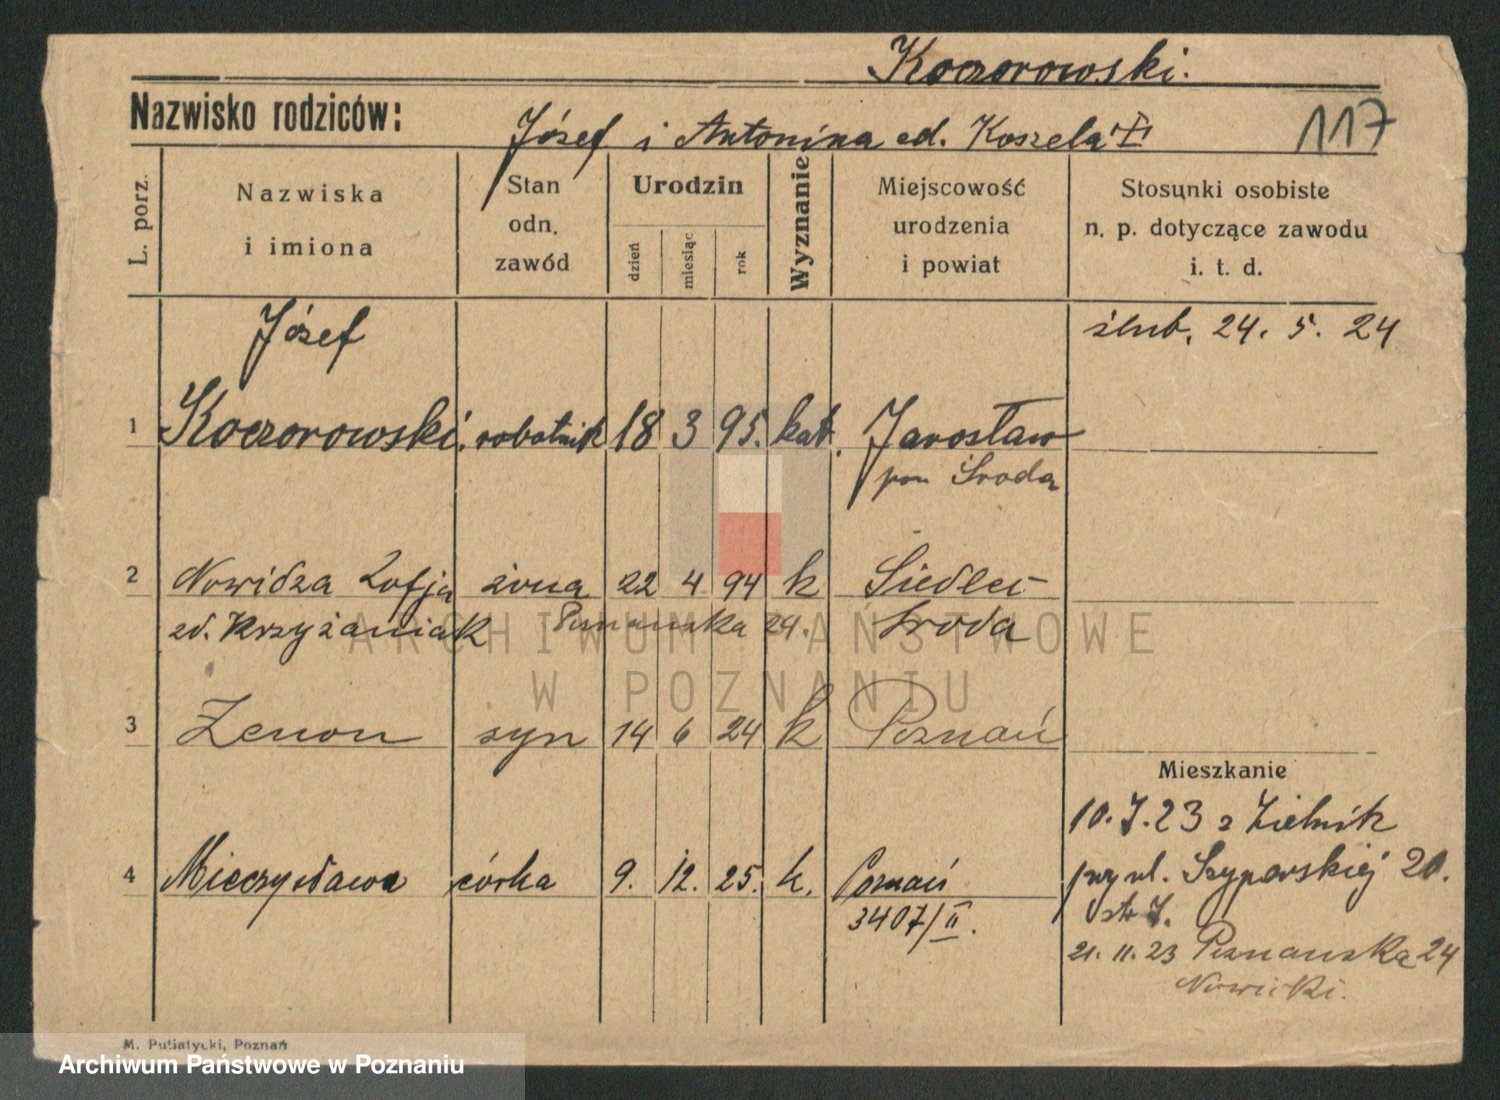 Koczorowski.
Nazwisko rodziców:
Józef i Antonina zd. Koszela
117
L. porz.
Nazwiska i imiona
Stan odn. zawód
Urodzin
dzień
miesiąc
rok
Wyznanie
Miejscowość urodzenia i powiat
Stosunki osobiste n. p. dotyczące zawodu i. t. d.
Józef ślub. 24. 5. 24
1 Koczorowski. robotnik 18 3 95. kat. Jarosław
pow Środa
2 Nowidza Zofja żona 22 4 94 k Siedlec
zd. Krzyżaniak Poznańska 24. Środa
3 Zenon syn 14 6 24 k Poznań
Mieszkanie
10. 7. 23 z Zielnik
4 Mieczysława córka 9. 12. 25. k. Poznań
przy ul. Szyperskiej 20.
3407/II.
21. 11. 23 Poznańska 24
Nowicki.
M. Putiatycki, Poznań
ARCHIWUM PAŃSTWOWE
W POZNANIU
Archiwum Państwowe w Poznaniu